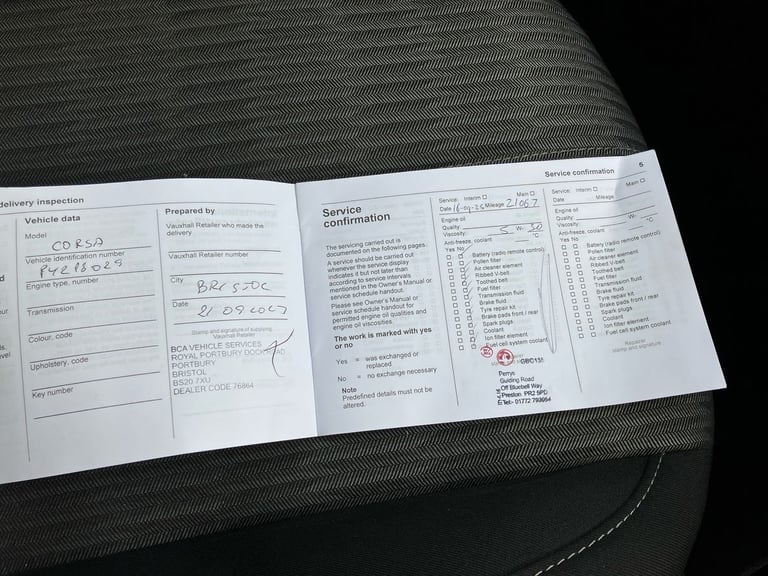 delivery inspection
Vehicle data
Model
CORSA
Vehicle identification number
Engine type, number
Transmission
Colour, code
Upholstery, code
Key number
Prepared by
Vauxhall Retailer who made the
delivery
Vauxhall Retailer number
City
BRISTOL
Date
Stamp and signature of supplying
Vauxhall Retailer
BCA VEHICLE SERVICES
ROYAL PORTBURY DOCK ROAD
PORTBURY
BRISTOL
BS20 7XU
DEALER CODE 76864
Service
confirmation
The servicing carried out is
documented on the following pages.
A service should be carried out
whenever the service display
indicates it but not later than
according to service intervals
mentioned in the Owner's Manual or
service schedule handout.
Please see Owner's Manual or
service schedule handout for
permitted engine oil qualities and
engine oil viscosities.
The work is marked with yes
or no
Yes = was exchanged or
replaced
No = no exchange necessary
Note
Predefined details must not be
altered.
Service: Interim Main
Date Mileage 21067
Engine oil
Quality:
Viscosity: 5 W- 30
Anti-freeze, coolant °C
Yes No
Battery (radio remote control)
Pollen filter
Air cleaner element
Ribbed V-belt
Toothed belt
Fuel filter
Transmission fluid
Brake fluid
Tyre repair kit
Brake pads front / rear
Spark plugs
Coolant
Ion filter element
Fuel cell system coolant
GBC151
Perrys
Guiding Road
Off Bluebell Way
Preston PR2 5PD
Service confirmation 5
Service: Interim Main
Date Mileage
Engine oil
Quality:
Viscosity: W-
Anti-freeze, coolant °C
Yes No
Battery (radio remote control)
Pollen filter
Air cleaner element
Ribbed V-belt
Toothed belt
Fuel filter
Transmission fluid
Brake fluid
Tyre repair kit
Brake pads front / rear
Spark plugs
Coolant
Ion filter element
Fuel cell system coolant
Repairer
stamp and signature